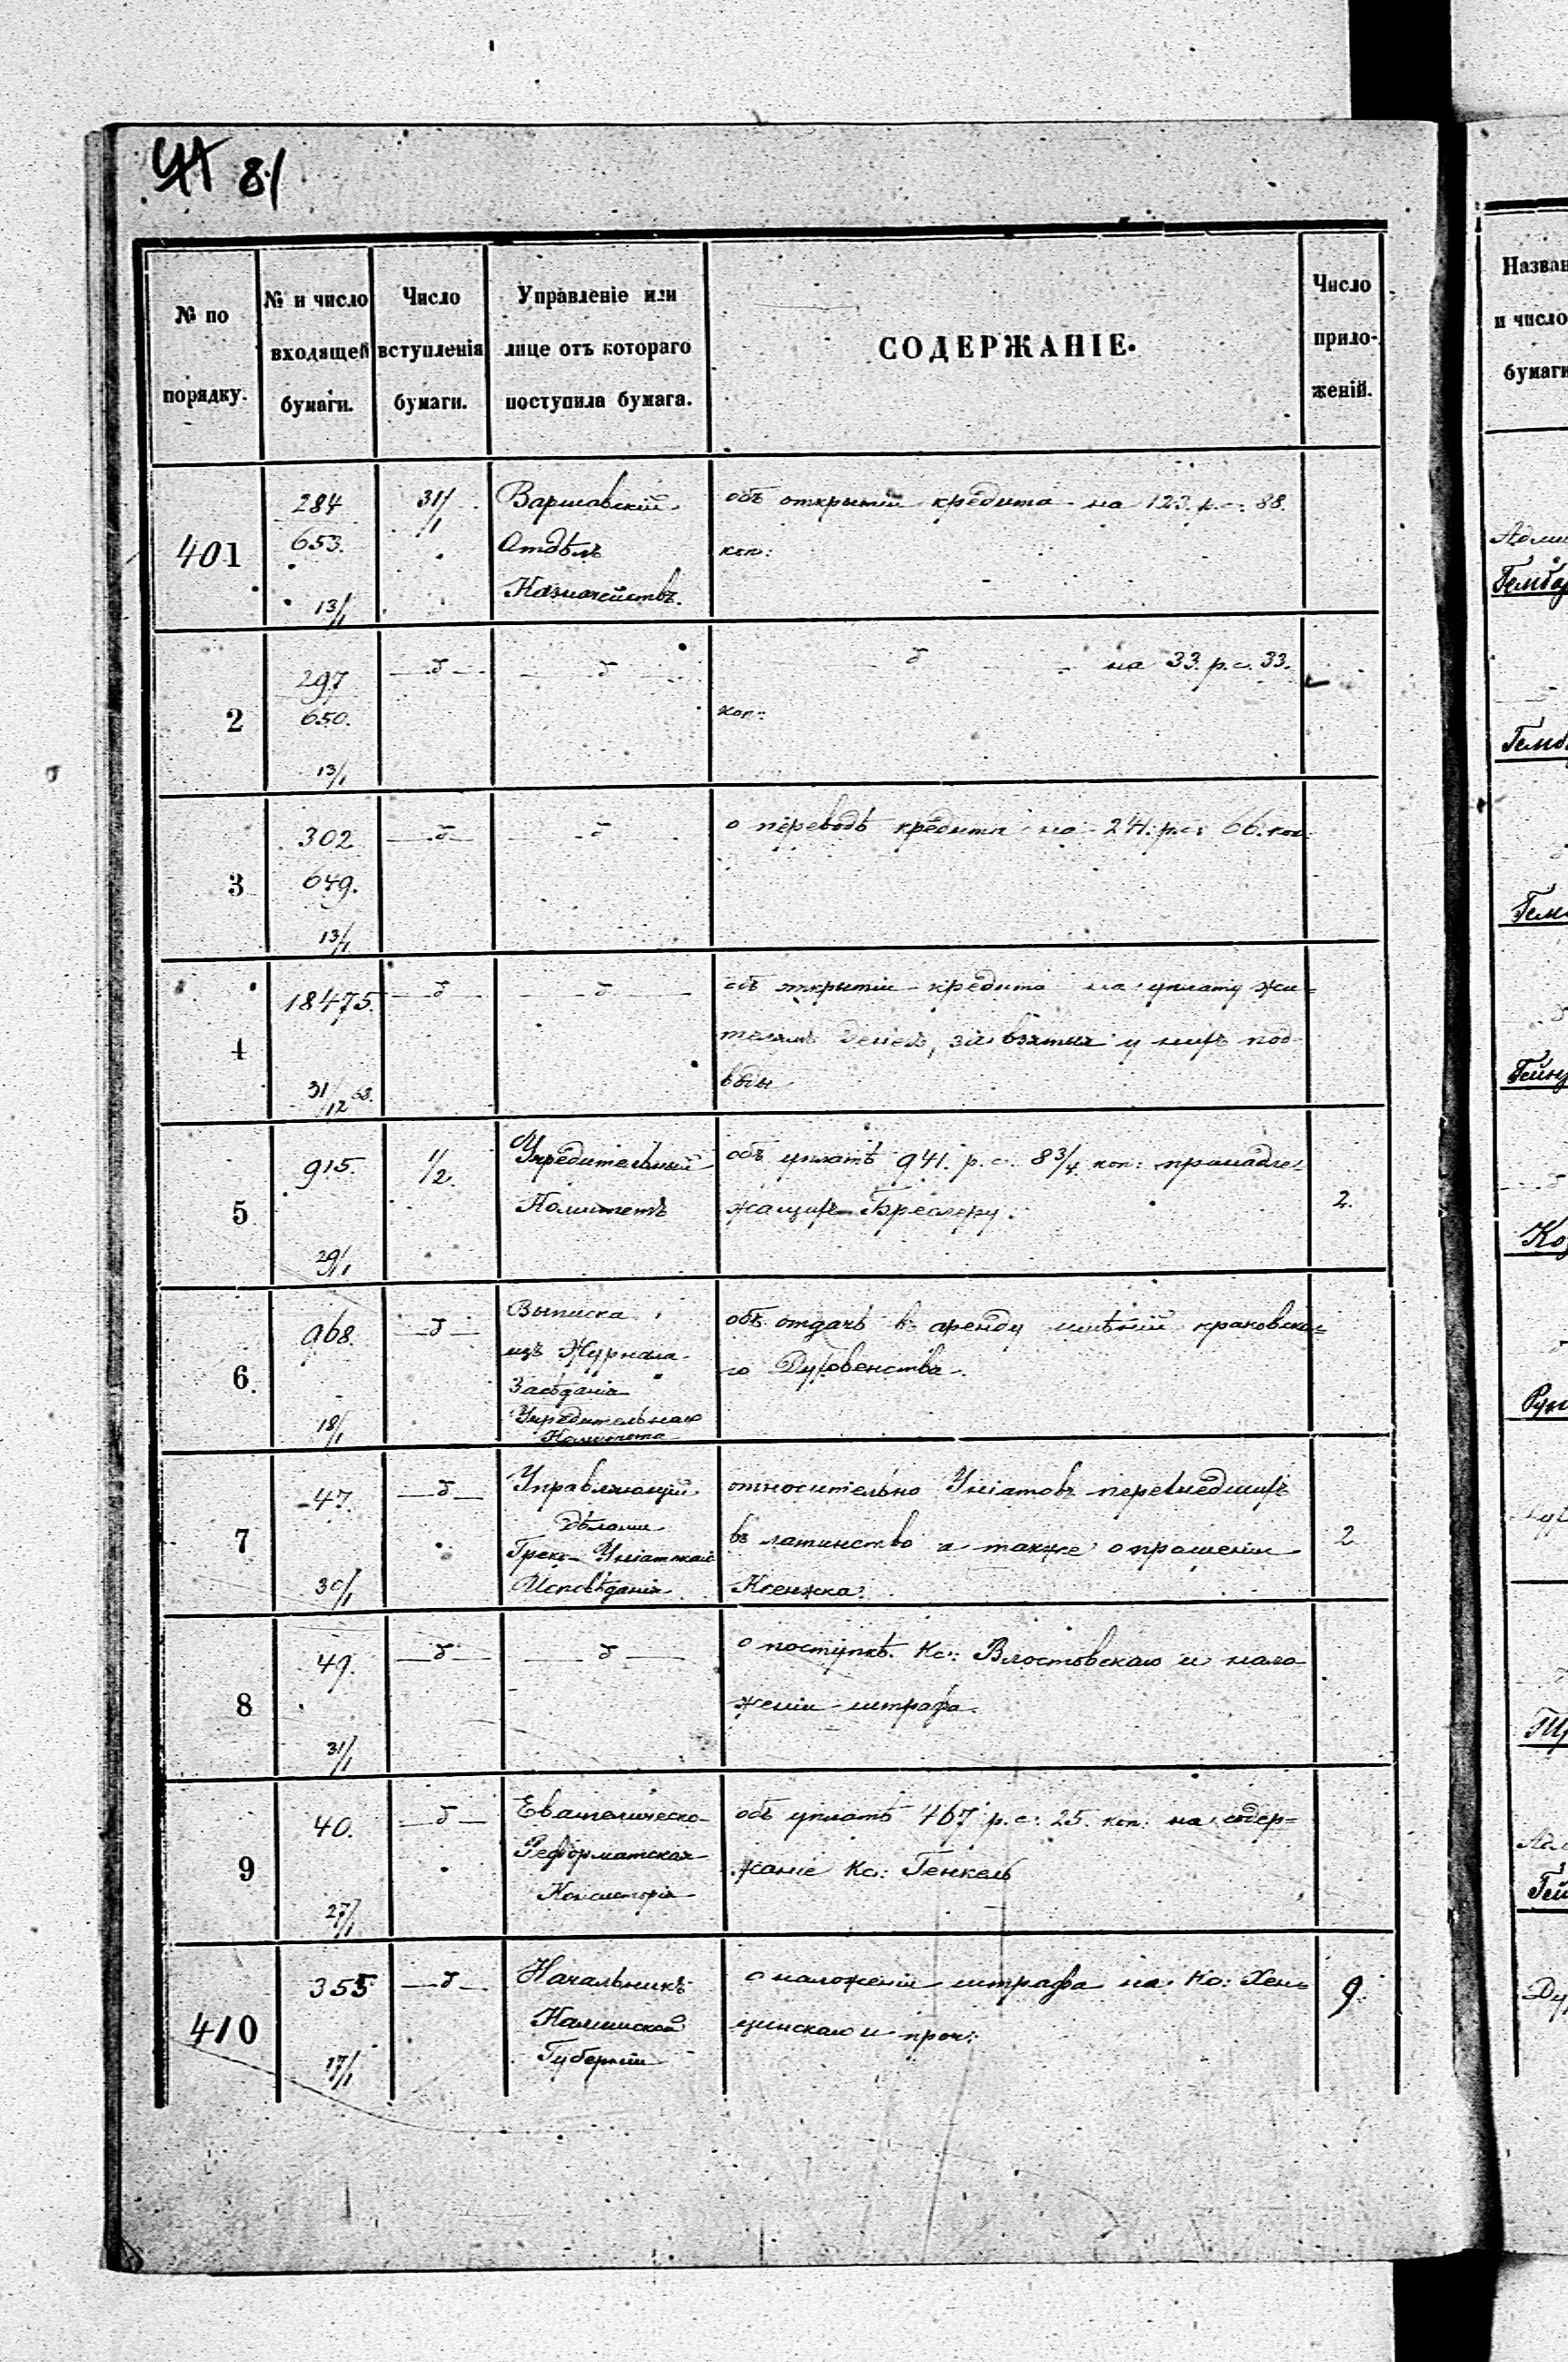 81
№ по
порядку.
№ и число
входящей
бумаги.
Число
вступленія
бумаги.
Управленіе или
лице отъ котораго
поступила бумага.
СОДЕРЖАНІЕ.
Число
прило-
женій.
401
284
653.
13/1
31/1
Варшавскій
Отдѣлъ
Казначействъ.
объ открытіи кредита на 123. р. с. 88.
коп:
2
297
650.
13/1
—б—
—б—
—б— на 33. р. с. 33.
коп:
3
302
649.
13/1
—б—
—б—
о переводѣ кредита на 24. р. с: 66. коп
4
18475.
31/12 68.
—б—
—б—
объ открытіи кредита на уплату жи=
телямъ денегъ, за взятыя у нихъ под-
воды
5
915.
29/1
1/2.
Учредительный
Комитетъ
объ уплатѣ 941. р. с. 8 3/4. коп: принадле=
жащихъ Бреслеру.
2.
6.
968.
18/1
—б—
Выписка
изъ Журнала
Засѣданія
Учредительнаго
Комитета
объ отдачѣ въ аренду имѣній краковска=
го Духовенства.
7
47.
30/1
—б—
Управляющій
Дѣлами
Греко-Уніатскаго
Исповѣданія
относительно Уніатовъ перешедшихъ
въ латинство а также о прошеніи
Ксенжка.
2
8
49.
31/1
—б—
—б—
о поступкѣ Кс: Влостовскаго и нало
женіи штрафа.
9
40.
27/1
—б—
Евангелическо-
Реформатская
Консисторія
объ уплатѣ 467 р. с: 25. коп: на содер=
жаніе Кс: Генкель
410
355
17/1
—б—
Начальникъ
Калишской
Губерніи
о наложеніи штрафа на Кс: Хен=
цинскаго и проч:
9.
Назван
и число
бумаги